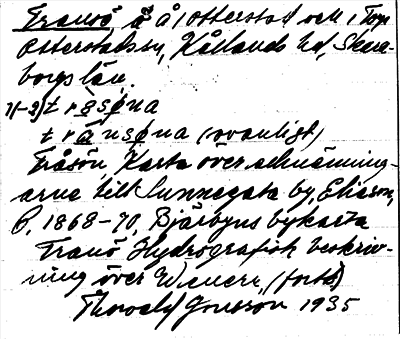 Tranö å å, Otterstad och i Top
Otterstads sn, Kållands hd, Skara-
borgs län.
1(-2) trasøna
tränsøna (ovanligt)
Tråsön, Karta över adnämning-
arne till Sunnegata by, Eliason,
P, 1868-70, Bjärbyns bykarta
Tranö Hydrografisk beskriv-
ning över Wenern, (forts)
Thorvald Jonsson 1935